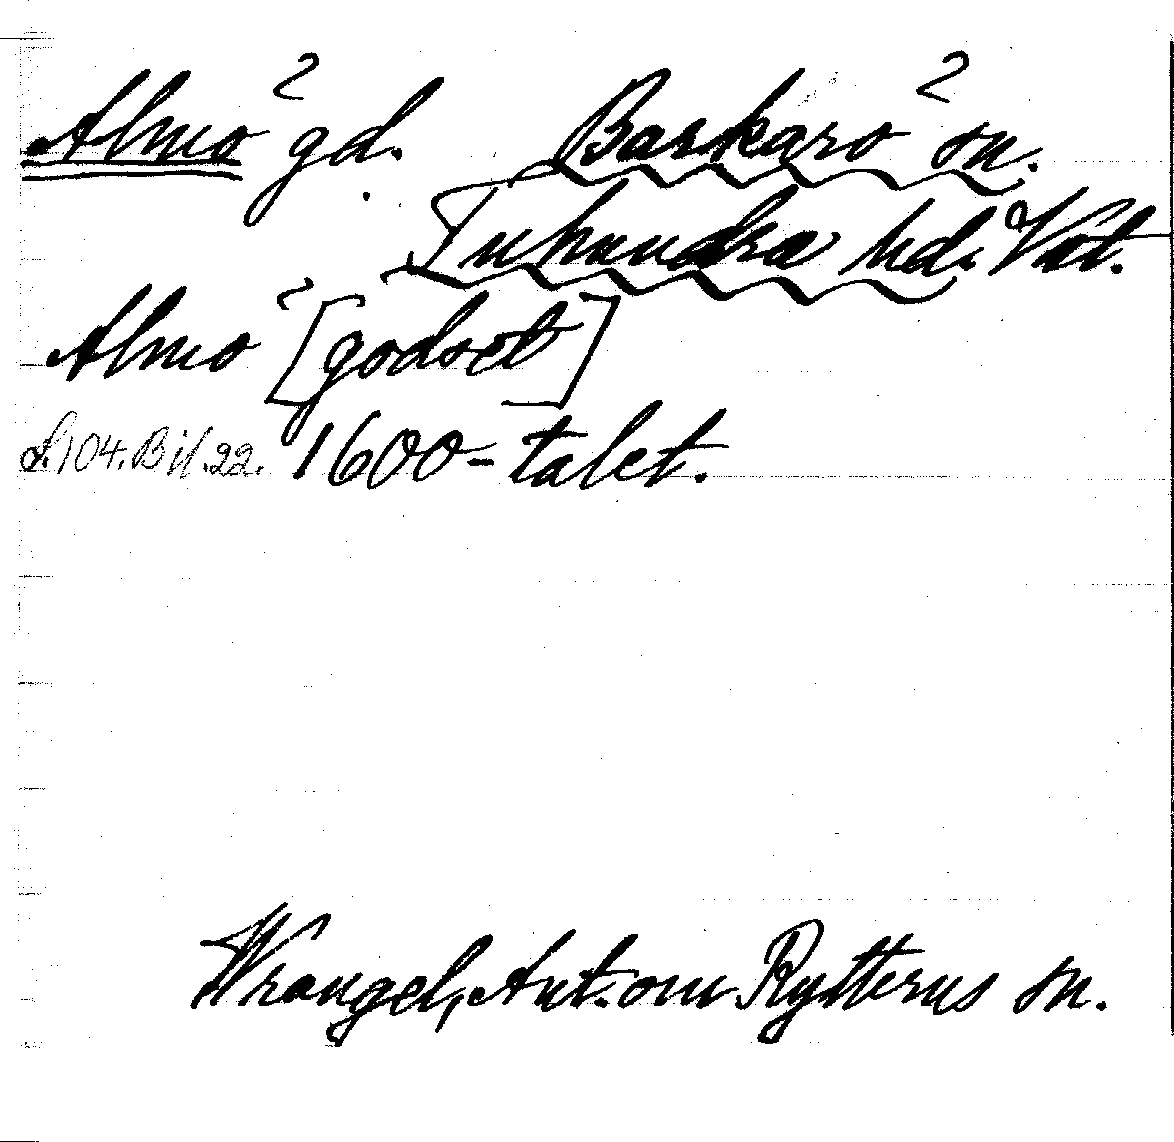 Almö gd. Barkarö sn.
Tuhundra hd. Vst.
Almö [godset]
L. 104. Bil. 22. 1600-talet.
Wrangel, Ant. om Rytterns sn.